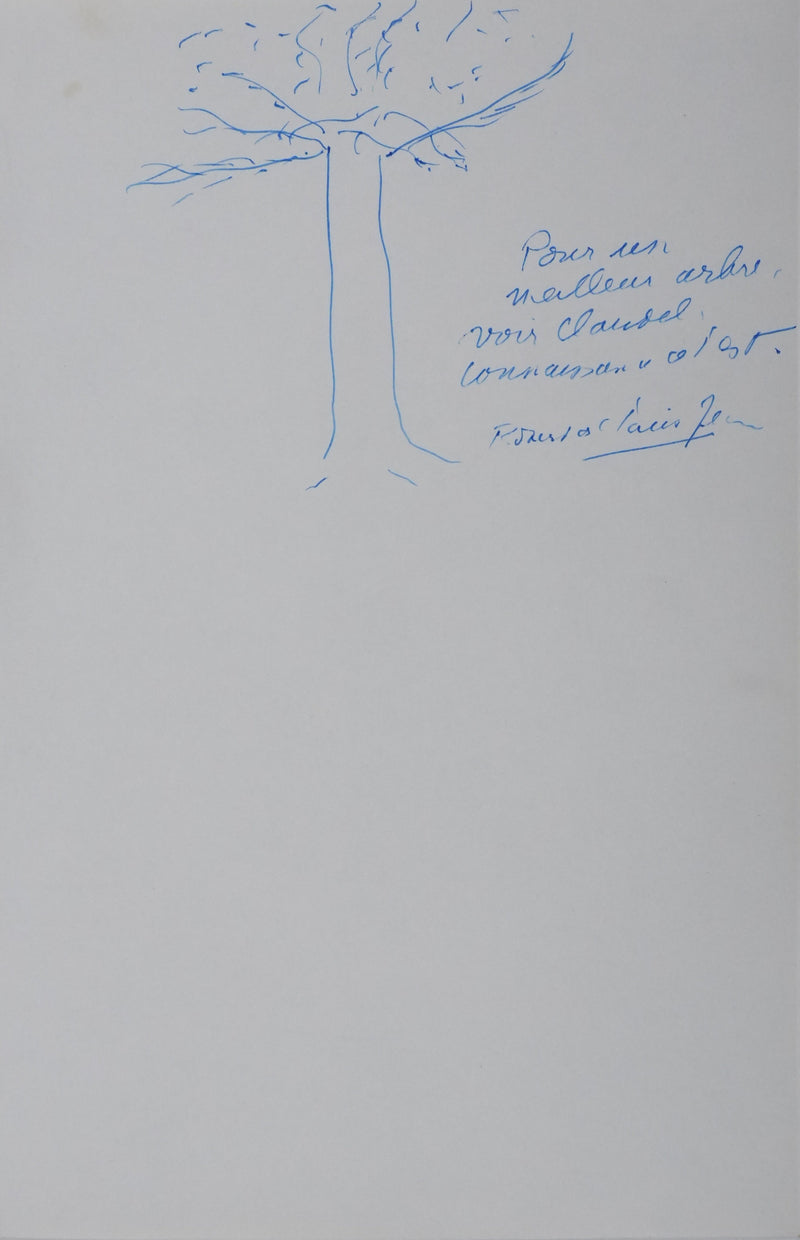 Pour un
meilleur arbre,
voir Claudel.
Connaissance de l'est.
Robert de Saint Jean